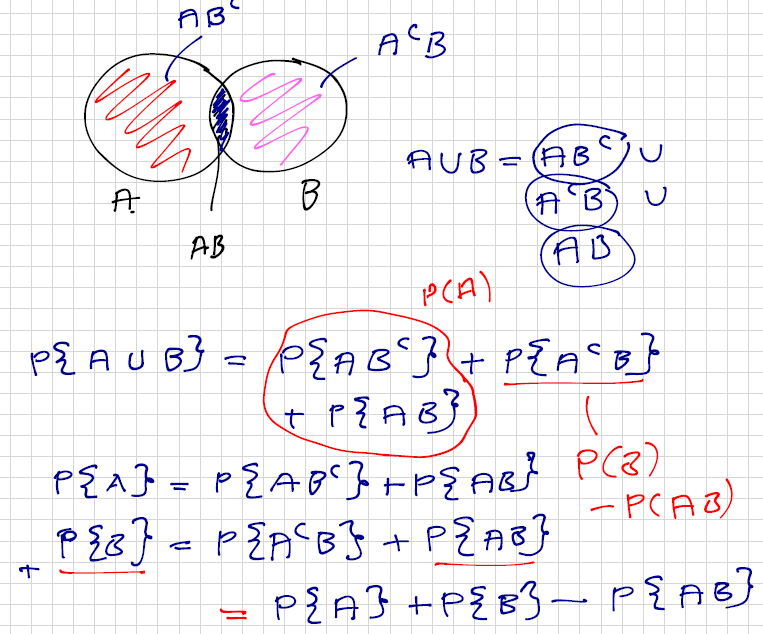 AB^c
A^cB
A
B
AB
A∪B = AB^c ∪
A^cB ∪
AB
P(A)
P{A∪B} = P{AB^c} + P{A^cB}
+ P{AB}
P(B)
- P(AB)
P{A} = P{AB^c} + P{AB}
+ P{B} = P{A^cB} + P{AB}
= P{A} + P{B} - P{AB}